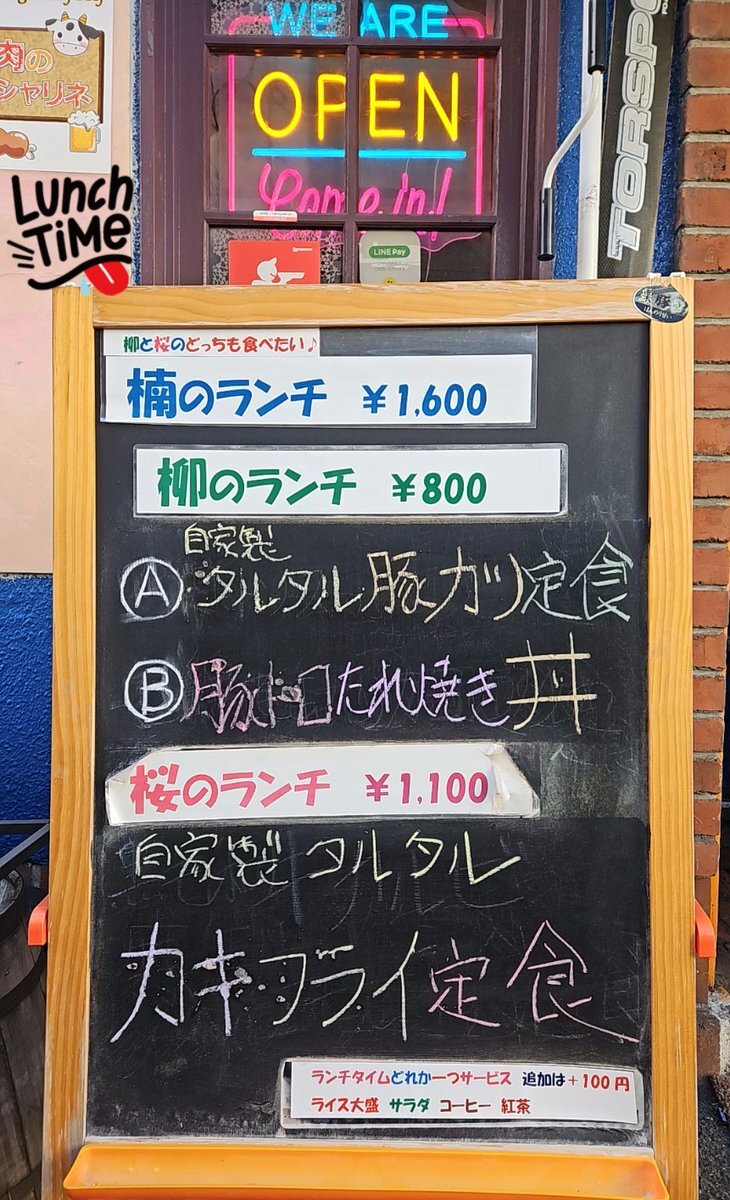 WE ARE
OPEN
Come in!
肉の
シャリネ
LUNCH
TIME
LINE Pay
TORSPO
柳と桜のどっちも食べたい♪
楠のランチ ¥1,600
柳のランチ ¥800
自家製
Ⓐ タルタル豚カツ定食
Ⓑ 豚トロたれ焼き丼
桜のランチ ¥1,100
自家製タルタル
カキフライ定食
ランチタイムどれか一つサービス 追加は+100円
ライス大盛 サラダ コーヒー 紅茶